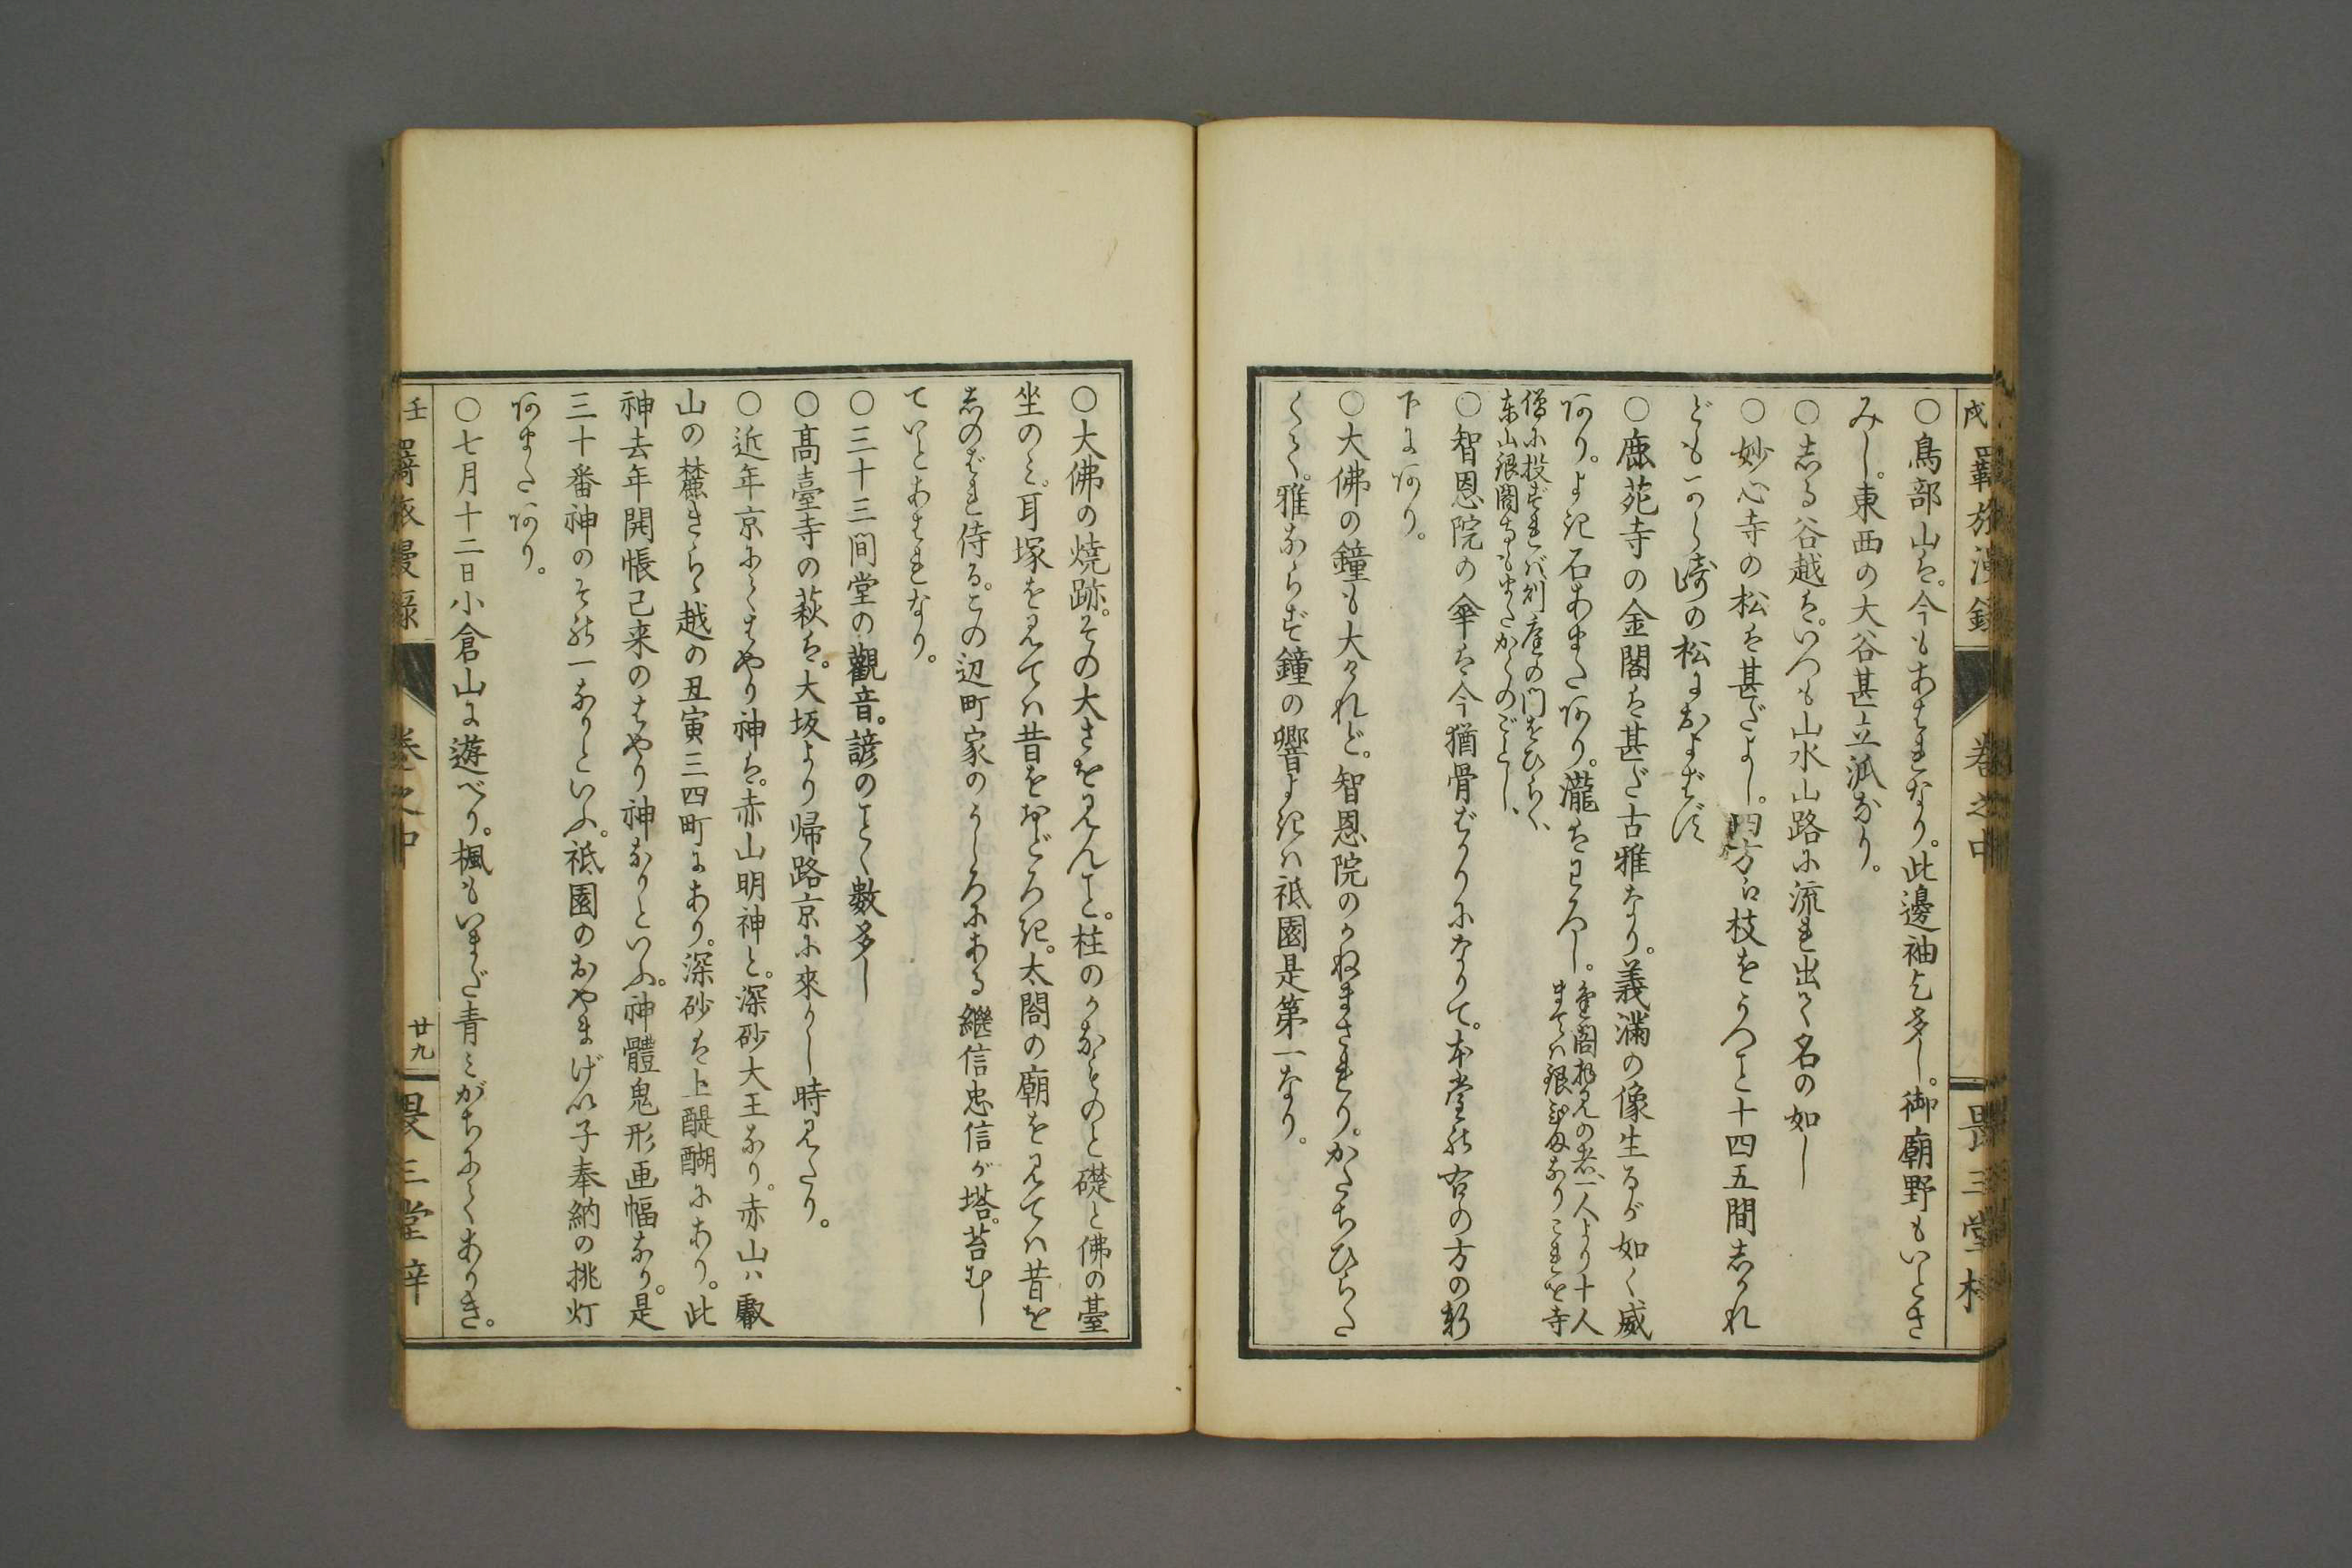 戌 羇旅漫録 巻之中 畏三堂梓
○鳥部山は。今もあはれなり。此邊袖乞多し。御廟野もいとさ
みし。東西の大谷甚立派なり。
○志る谷越は。いつも山水山路に流れ出て名の如し
○妙心寺の松は甚だよし。四方に枝をうつこと十四五間しかれ
どもから崎の松におよばず
○鹿苑寺の金閣は甚だ古雅なり。義滿の像生るが如く威
あり。よき石あまたあり。瀧はわろし。
金閣拝見の者、一人より十人
まては銀弐匁なりこれを寺
僧に投ずれバ則庭の門をひらく、
東山銀閣寺もまたかくのごとし、
○智恩院の傘は今猶骨ばかりになりて。本堂の右の方の軒
下にあり。
○大佛の鐘も大なれど。智恩院のかねまされり。かたちひらた
くて。雅ならず鐘の響よきハ祗園是第一なり。
○大佛の燒跡。その大さを見んこと。柱のかなものと礎と佛の臺
坐のミ。耳塚を見てハ昔をおどろき。太閤の廟を見てハ昔を
志のばれ侍る。この辺町家のうしろにある繼信忠信が塔。苔むし
ていとあはれなり。
○三十三間堂の觀音。諺のごとく數多し
○髙臺寺の萩は。大坂より帰路京に來りし時見たり。
○近年京にてはやり神は。赤山明神と。深砂大王なり。赤山ハ叡
山の麓きらゝ越の丑寅三四町にあり。深砂は上醍醐にあり。此
神去年開帳已来のはやり神なりといふ。神體鬼形画幅なり。是
三十番神のその一なりといふ。祗園のおやまげい子奉納の挑灯
あまたあり。
○七月十二日小倉山に遊べり。楓もいまだ青ミがちにてありき。
壬 羇旅漫録 巻之中 廿九 畏三堂梓